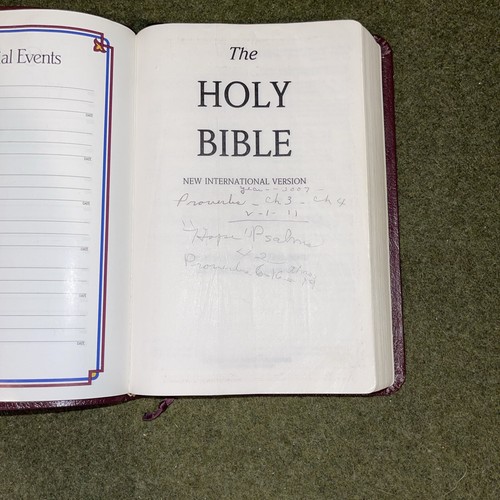 al Events
The
HOLY
BIBLE
NEW INTERNATIONAL VERSION
Proverbs - Ch 3 - Ch 4
v-1-11
"Hope" Psalms
Proverbs